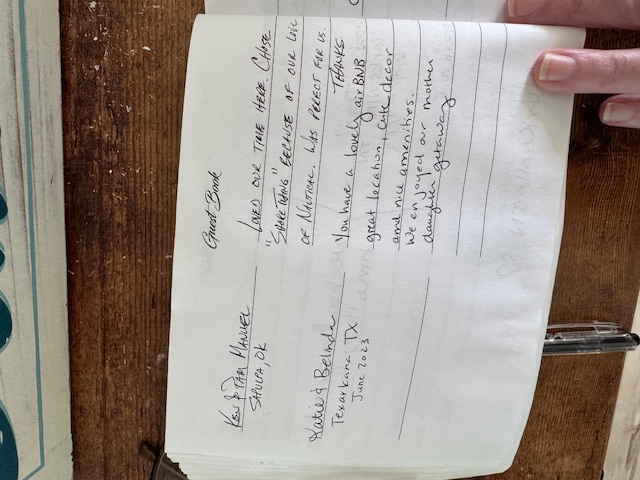 Guest Book
Ken & Pam Manuel
Sapulpa, OK
Loved our time here. Chose
"Shore Thing" because of our love
of Nautical. Was perfect for us.
Thanks
Katie & Belinda
Texarkana, TX
June 2023
You have a lovely air BNB.
great location, cute decor
and nice amenities.
We enjoyed our mother
daughter getaway